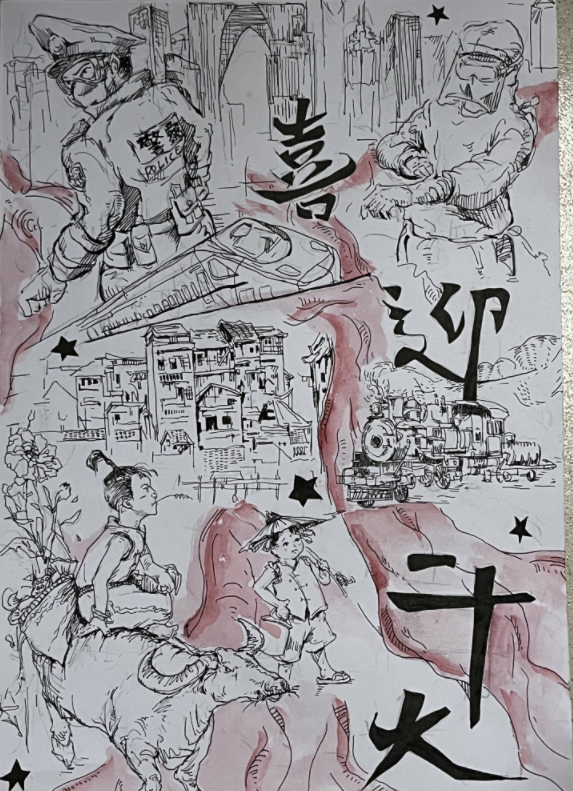 警察
POLICE
喜
迎
二十
大